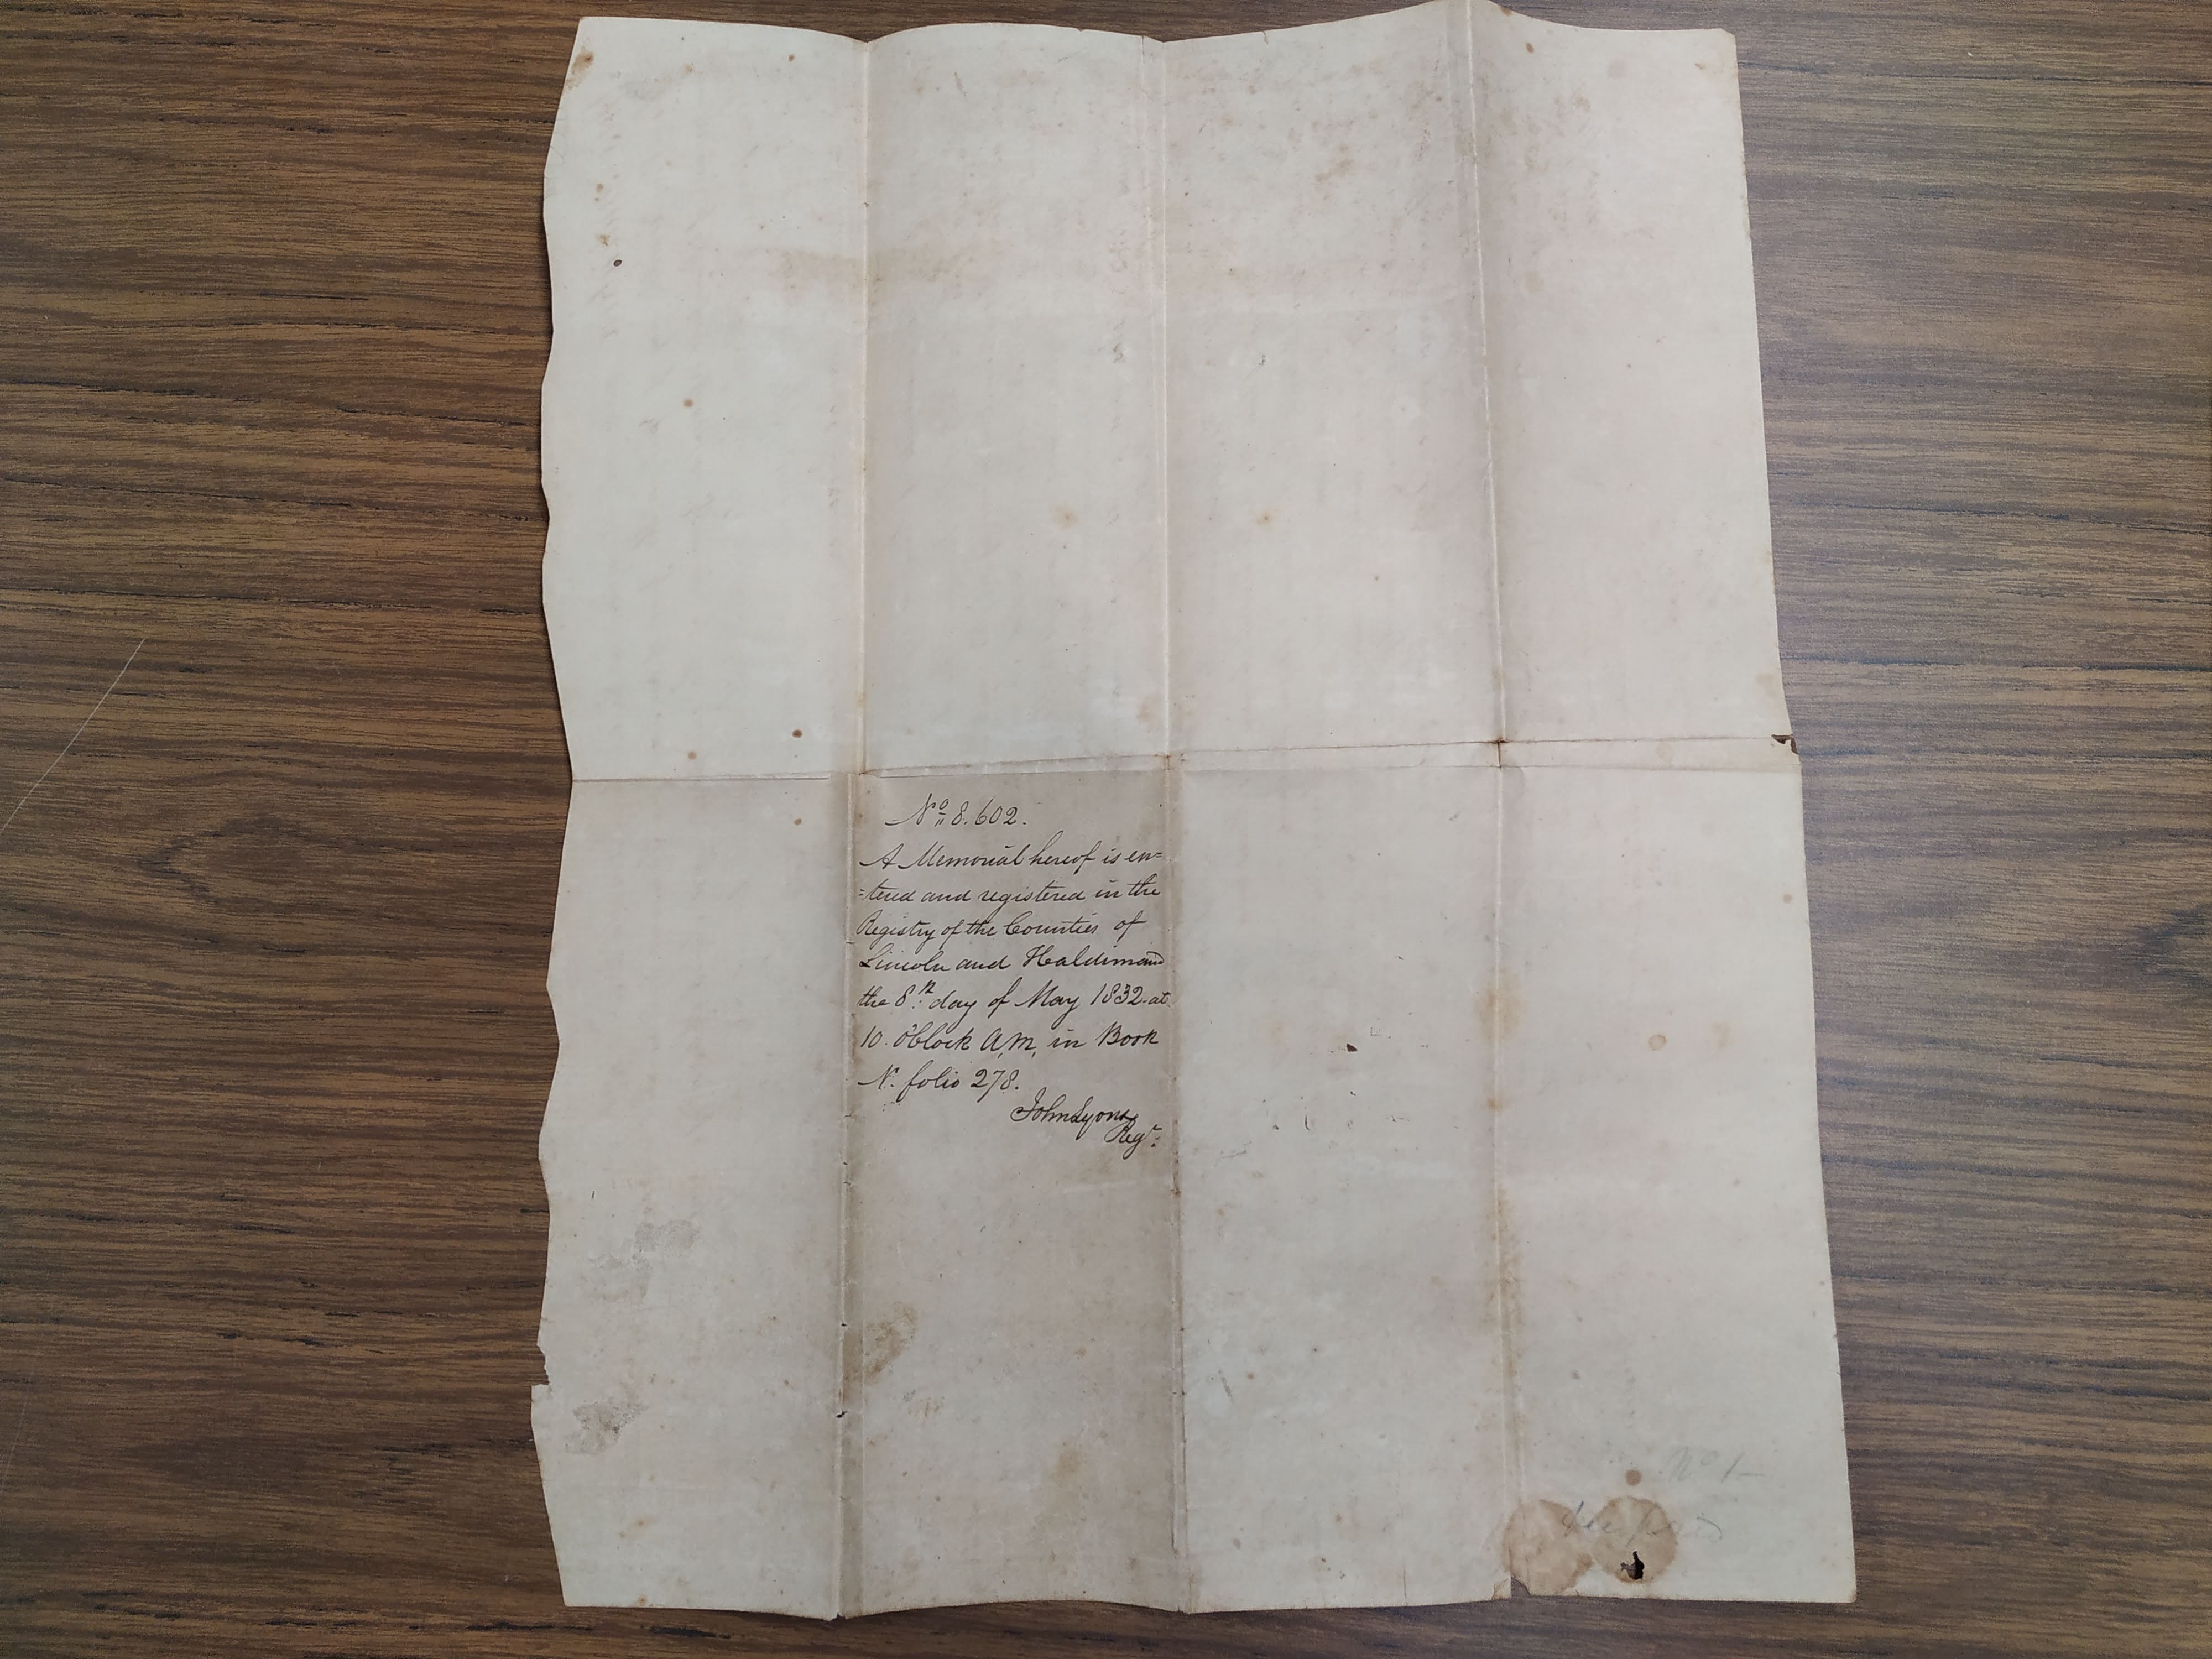 Nº 8.602.
A Memorial hereof is en=
=tered and registered in the
Registry of the Counties of
Lincoln and Haldimand
the 8th day of May 1832 at
10. O'Clock A,M, in Book
N. folio 278.
John Lyons